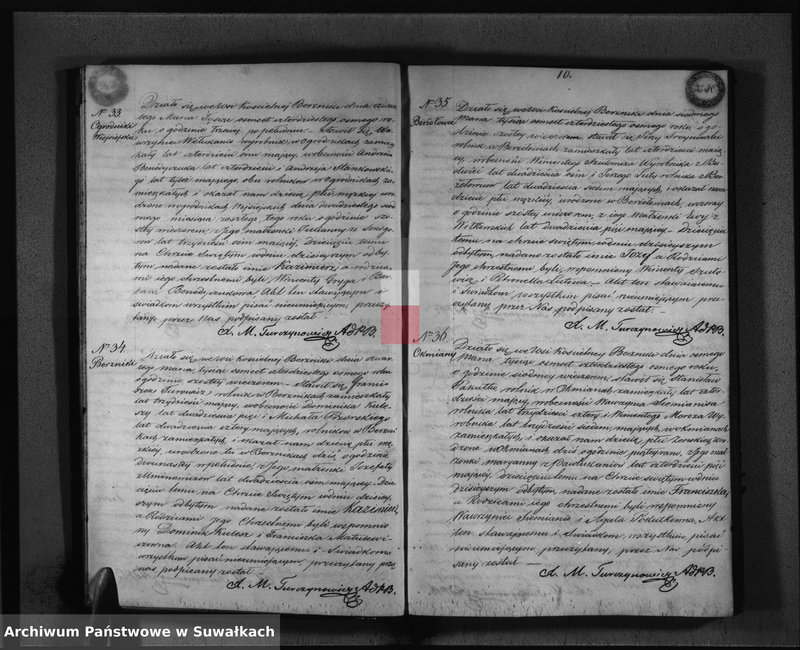 N° 33
Ogrodniki
Wiejsiejskie
Działo się we wsi kościelnej Berzniki dnia czwar-
tego Marca tysiąc osmset czterdziestego osmego ro-
ku o godzinie trzeciej po południu. Stawił się Wa-
wrzyniec wyrobnik w Ogrodnikach zamiesz-
kały lat czterdzieści ośm mający w obecności Andrzeja
Benedyczuka lat czterdzieści i Andrzeja Stankowskie-
go lat tysiąc mających obu rolników w Ogrodnikach za-
mieszkałych i okazał nam dziecię płci męzkiej uro-
dzone w Ogrodnikach Wiejsiejskich dnia dwudziestego siód-
mego miesiąca zeszłego tego roku o godzinie szó-
stej wieczorem, z Jego małżonki Julianny ze
lat trzydzieści ośm mającej. Dziecięciu temu
na Chrzcie Świętym w dniu dzisiejszym odby-
tym nadane zostało imie Kazimierz, a rodzica-
mi iego chrzestnemi byli Wincenty Gryga i Bar-
bara Benedyczukowa. Akt ten stawającym i
świadkom wszystkim pisać nieumiejącym, przeczy-
tany, przez Nas podpisany został.
X. M. Turczynowicz A.P.B.
N° 34
Berzniki
Działo się we wsi kościelnej Berzniki dnia czwar-
tego marca tysiąc osmset czterdziestego osmego roku
o godzinie szóstej wieczorem. Stawił się Franci-
szek Jurewicz rolnik w Berznikach zamieszkały
lat trzydzieści mający, w obecności Dominika Kule-
szy lat dwadzieścia pięć i Michała
lat dwadzieścia cztery mających, rolników w Berzni-
kach zamieszkałych i okazał nam dziecię płci mę-
zkiej, urodzone tu w Berznikach dziś o godzinie
dwunastej w południe z Jego małżonki Jozefaty
z lat dwadzieścia ośm mającej. Dzie-
cięciu temu na Chrzcie Świętym w dniu dzisiej-
szym odbytym nadane zostało imie Kazimierz,
a Rodzicami Jego Chrzestnemi byli wspomnio-
ny Dominik Kulesz i Franciszka Matulewi-
czowna. Akt ten stawającemu i Świadkom
wszystkim pisać nieumiejącym, przeczytany przez
nas podpisany został.
X. M. Turczynowicz A.P.B.
10.
N° 35
Działo się we wsi kościelnej Berzniki dnia siódmego
Marca tysiąc osmset czterdziestego osmego roku o go-
dzinie szóstej wieczorem. Stawił się Jerzy
rolnik w zamieszkały lat czterdzieści mają-
cy, w obecności Wincentego wyrobnika z
lat dwadzieścia ośm i Jozefa rolnika z
lat dwadzieścia siedm mających, i okazał nam
dziecię płci męzkiej, urodzone w wczoraj
o godzinie szóstej wieczorem, z iego Małżonki Ewy z
lat dwadzieścia pięć mającej. Dziecięciu
temu na chrzcie świętym w dniu dzisiejszym
odbytym, nadane zostało imie Jozef a Rodzicami
Jego chrzestnemi byli wspomniony Wincenty
i Petronella. Akt ten stawającemu
i Świadkom wszystkim pisać nieumiejącym, prze-
czytany, przez Nas podpisany został.
X. M. Turczynowicz A.P.B.
N° 36
Okmiany
Działo się we wsi kościelnej Berzniki dnia osmego
Marca, tysiąc osmset czterdziestego osmego roku,
o godzinie siódmej wieczorem, stawił się Stanisław
rolnik w Okmianach zamieszkały lat czter-
dzieści mający w obecności Wawrzyńca
rolnika lat trzydzieści cztery i Wincentego Moroza wy-
robnika lat trzydzieści siedm mających, w Okmianach
zamieszkałych i okazał nam dziecię płci żeńskiej uro-
dzone w Okmianach dziś o godzinie piątej rano, z Jego mał-
żonki Maryanny z Pawlukaniow lat czterdzieści pięć
mającej, dziecięciu temu na Chrzcie świętym w dniu
dzisiejszym odbytym nadane zostało imie Franciszka,
a Rodzicami iego chrzestnemi byli wspomniony
Wawrzyniec i Agata. Akt
ten stawającemu i Świadkom, wszystkim pisać
nieumiejącym przeczytany, przez Nas podpi-
sany został
X. M. Turczynowicz A.P.B.
Archiwum Państwowe w Suwałkach